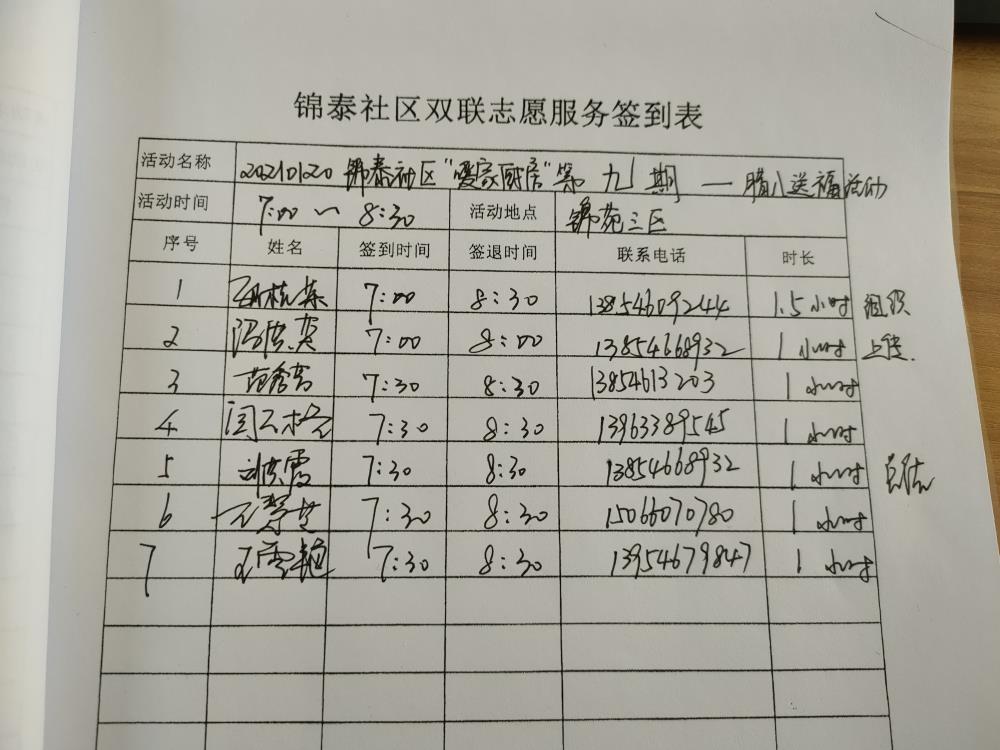 锦泰社区双联志愿服务签到表
活动名称 20210120 锦泰社区“爱家厨房”第九期 — 腊八送福活动
活动时间 7:00 — 8:30 活动地点 锦苑三区
序号 姓名 签到时间 签退时间 联系电话 时长
1 7:00 8:30 13854609244 1.5小时 组织
2 7:00 8:00 13854668932 1小时 上传.
3 范秀芳 7:30 8:30 13854613203 1小时
4 7:30 8:30 13963389545 1小时
5 刘洪霞 7:30 8:30 13854668932 1小时 总结
6 7:30 8:30 15066070780 1小时
7 7:30 8:30 13954679847 1小时